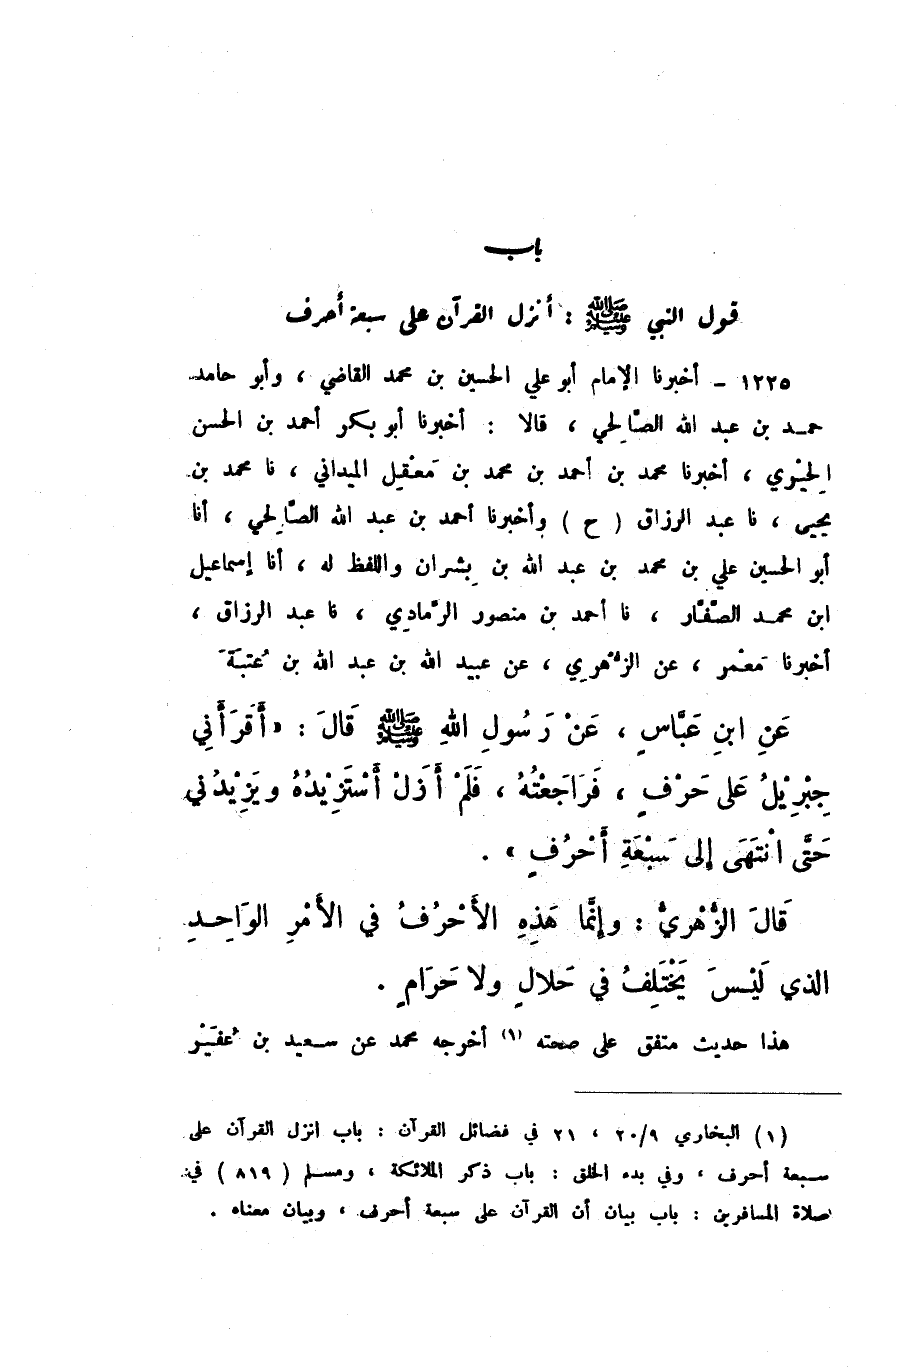 باب
قول النبي ﷺ : أنزل القرآن على سبعة أحرف
١٢٢٥ ـ أخبرنا الإمام أبو علي الحسين بن محمد القاضي ، وأبو حامد
حمد بن عبد الله الصَّالِحي ، قالا : أخبرنا أبو بكر أحمد بن الحسن
الحِيْري ، أخبرنا محمد بن أحمد بن محمد بن مَعْقِل الميداني ، نا محمد بن
يحيى ، نا عبد الرزاق ( ح ) وأخبرنا أحمد بن عبد الله الصَّالِحي ، أنا
أبو الحسين علي بن محمد بن عبد الله بن بِشران واللفظ له ، أنا إسماعيل
ابن محمد الصَّفَّار ، نا أحمد بن منصور الرَّمادي ، نا عبد الرزاق ،
أخبرنا مَعْمر ، عن الزُّهْرِي ، عن عبيد الله بن عبد الله بن عُتبَةَ
عَنِ ابنِ عَبَّاسٍ ، عَنْ رَسُولِ اللهِ ﷺ قَالَ : « أَقرَأَنِي
جِبْرِيْلُ عَلى حَرْفٍ ، فَرَاجَعْتُهُ ، فَلَمْ أَزَلْ أَسْتَزِيْدُهُ ويَزِيْدُني
حَتَّى انْتَهَى إلى سَبْعَةِ أَحْرُفٍ » .
قَالَ الزُّهْريُّ : وإنَّما هَذِهِ الأَحْرُفُ في الأَمْرِ الوَاحِدِ
الذي لَيْسَ يَخْتَلِفُ في حَلالٍ ولا حَرَامٍ .
هذا حديث متفق على صحته (١) أخرجه محمد عن سعيد بن عُفَيْر
(١) البخاري ٢٠/٩ ، ٢١ في فضائل القرآن : باب انزل القرآن على
سبعة أحرف ، وفي بدء الخلق : باب ذكر الملائكة ، ومسلم ( ٨١٩ ) في
صلاة المسافرين : باب بيان أن القرآن على سبعة أحرف ، وبيان معناه .